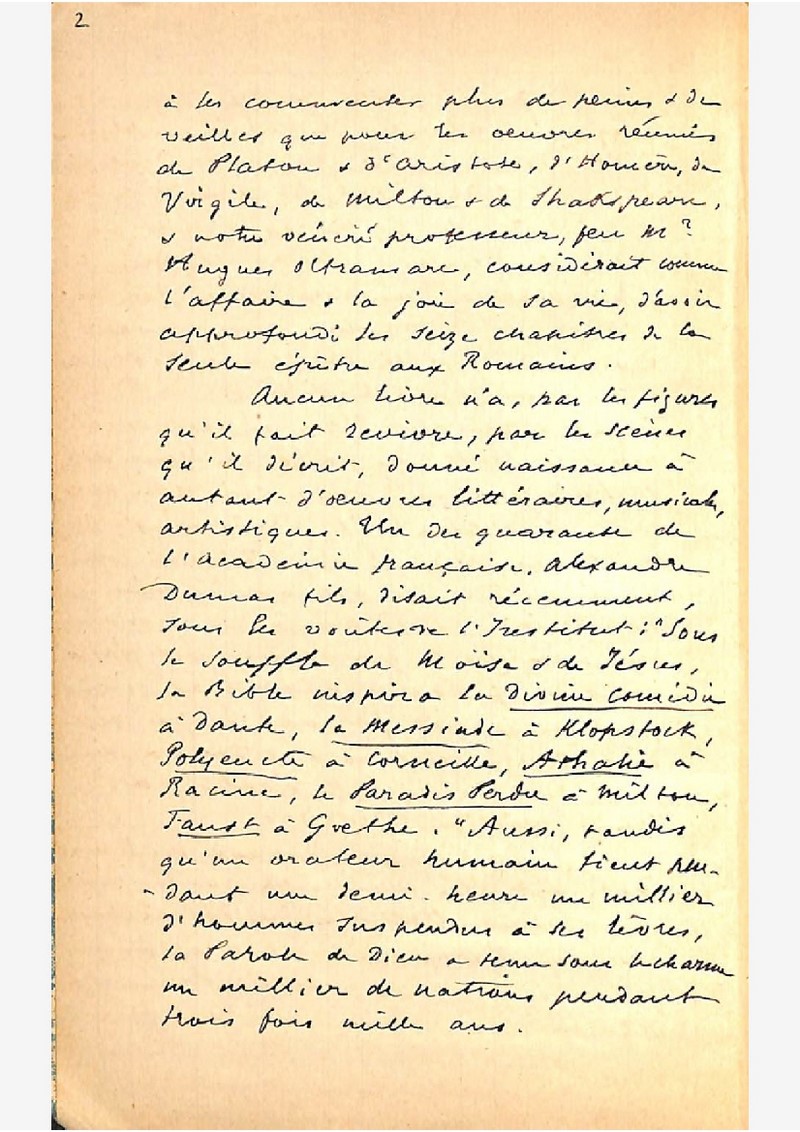 2
à les commenter plus de peines & de
veilles que pour les oeuvres réunies
de Platon & d'Aristote, d'Homère, de
Virgile, de Milton & de Shakspeare,
& notre vénéré professeur, feu Mr
Hugues Oltramare, considérait comme
l'affaire & la joie de sa vie, d'avoir
approfondi les seize chapitres de la
seule épître aux Romains.
Aucun livre n'a, par les figures
qu'il fait revivre, par les scènes
qu'il décrit, donné naissance à
autant d'oeuvres littéraires, musicales,
artistiques. Un des quarante de
l'Académie française, Alexandre
Dumas fils, disait récemment,
sous les voûtes de l'Institut : "Sous
le souffle de Moïse & de Jésus,
la Bible inspira la Divine Comédie
à Dante, la Messiade à Klopstock,
Polyeucte à Corneille, Athalie à
Racine, le Paradis Perdu à Milton,
Faust à Goethe." Aussi, tandis
qu'un orateur humain tient pen-
-dant une demi-heure un millier
d'hommes suspendus à ses lèvres,
la Parole de Dieu a tenu sous le charme
un millier de nations pendant
trois fois mille ans.